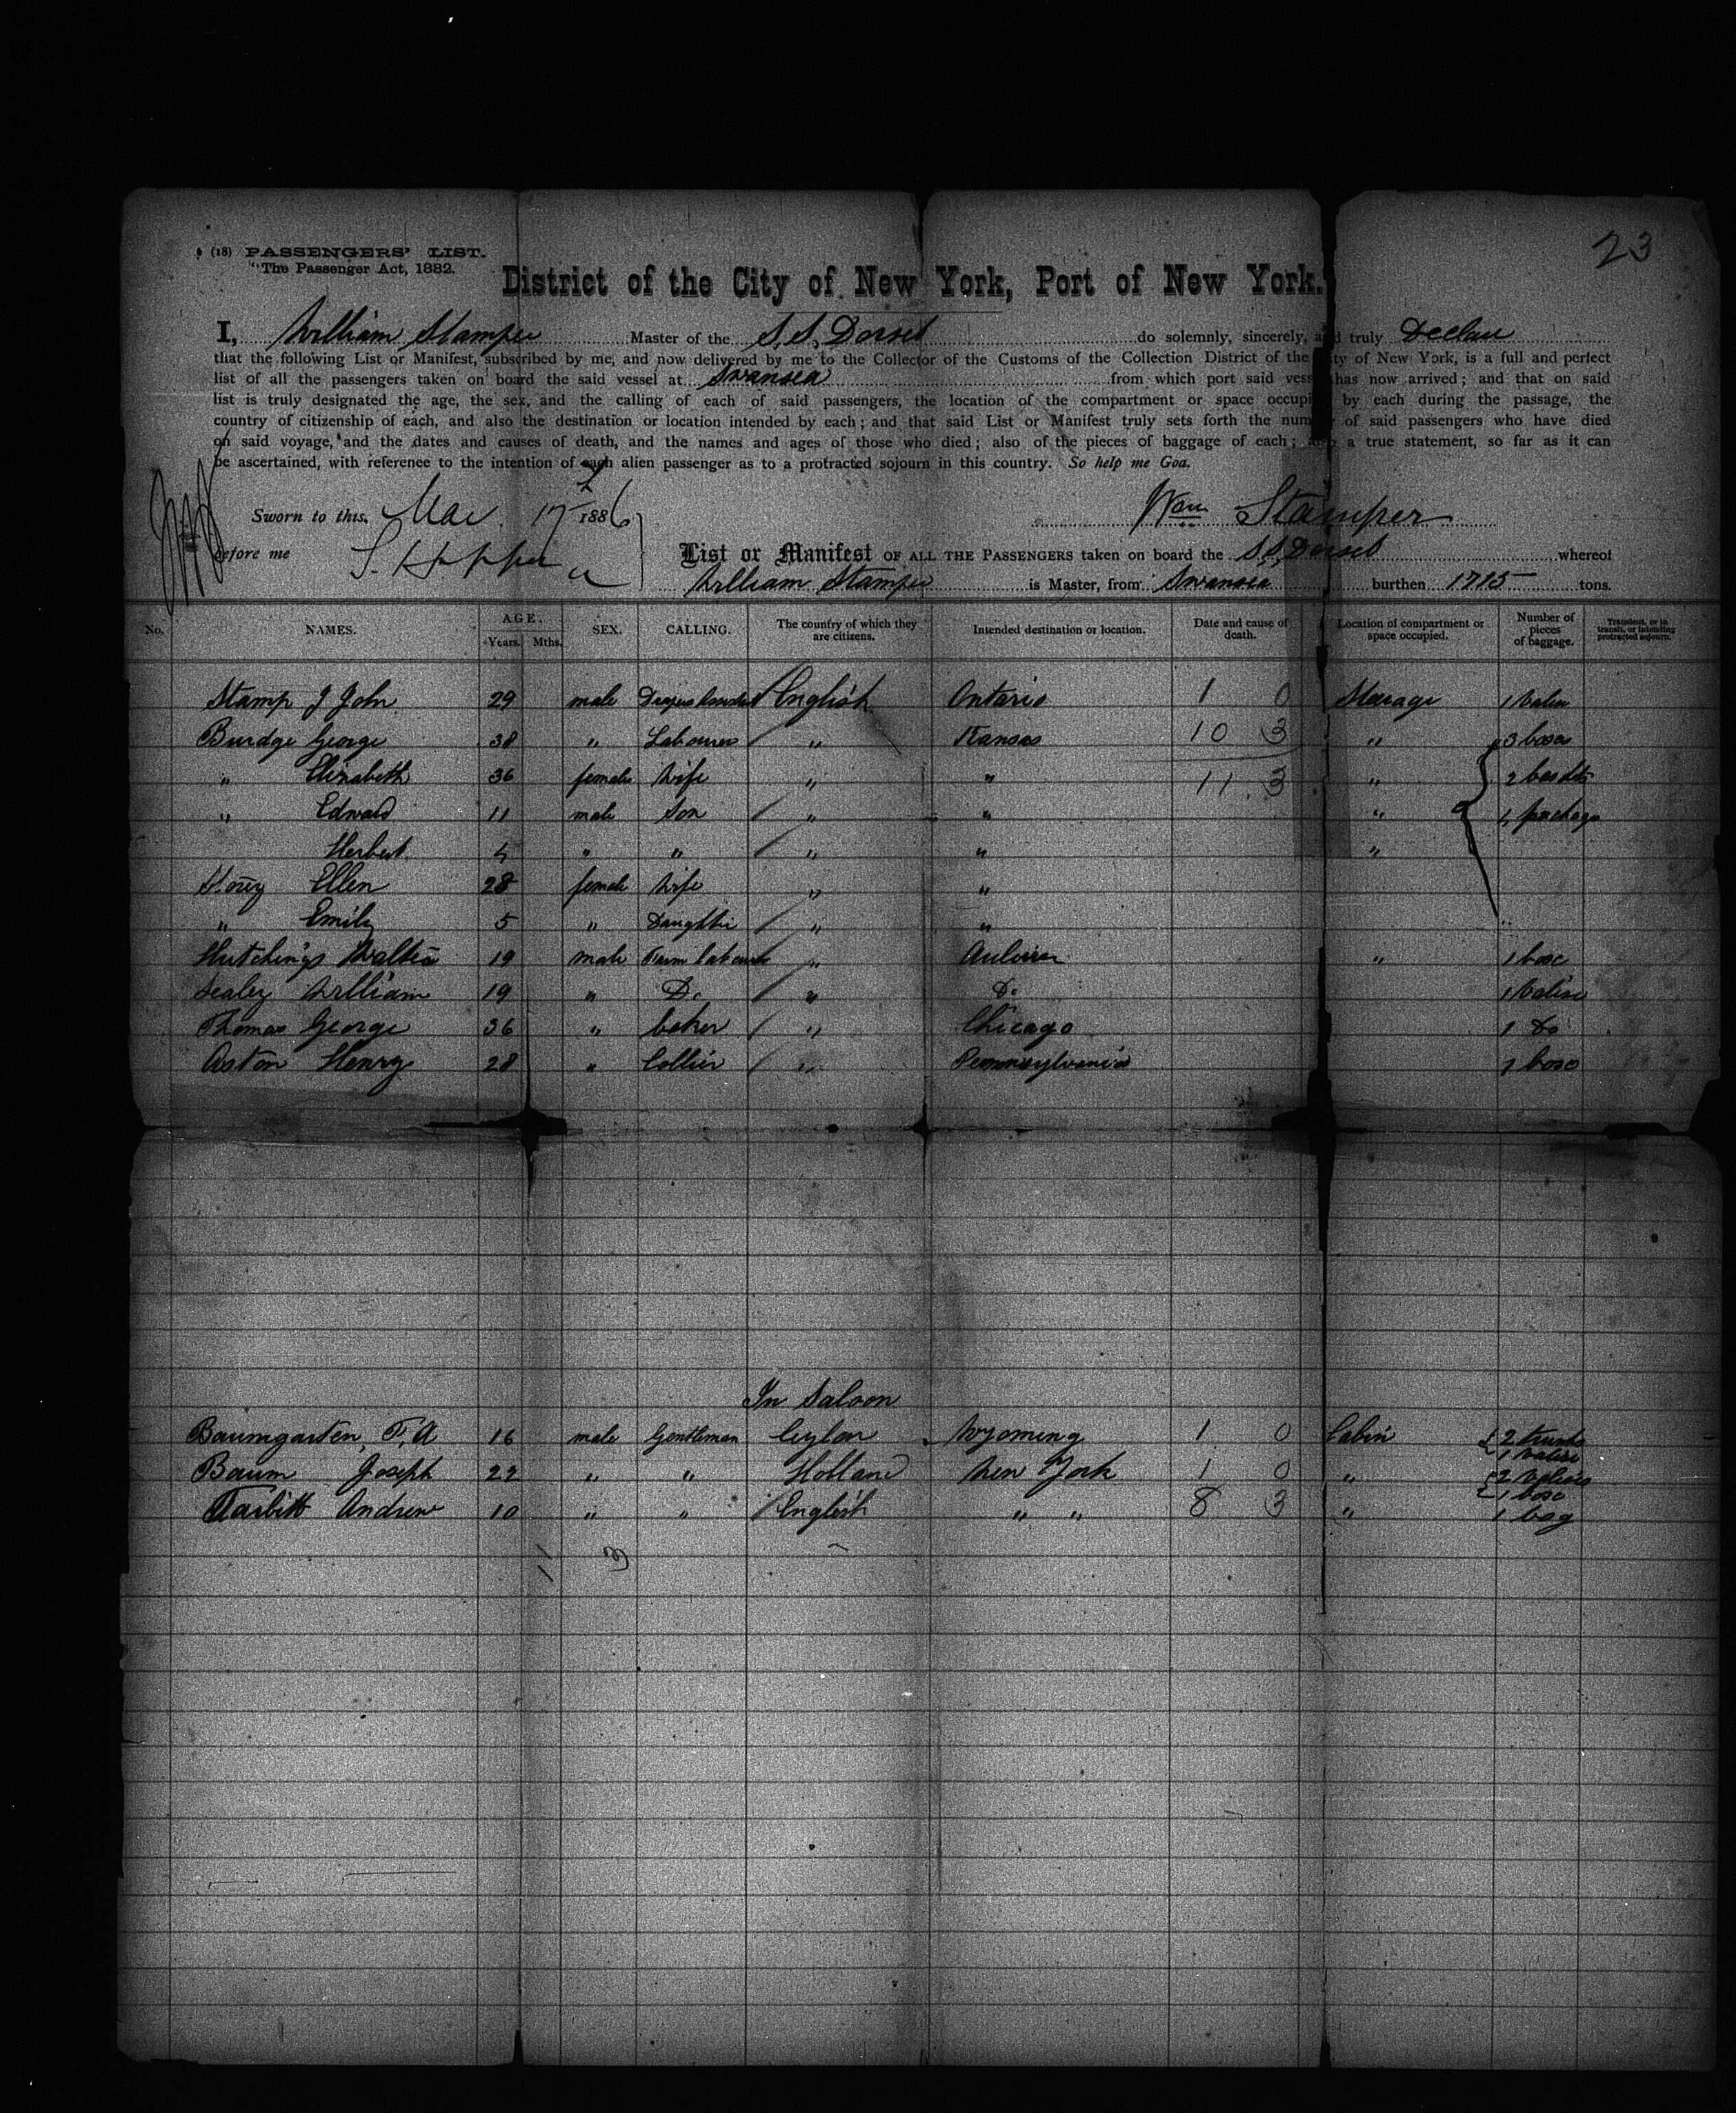 23
(18) PASSENGERS' LIST.
"The Passenger Act, 1882.
District of the City of New York, Port of New York.
I, William Stamper Master of the S.S. Dorset do solemnly, sincerely, and truly Declare
that the following List or Manifest, subscribed by me, and now delivered by me to the Collector of the Customs of the Collection District of the City of New York, is a full and perfect
list of all the passengers taken on board the said vessel at Swansea from which port said vessel has now arrived; and that on said
list is truly designated the age, the sex, and the calling of each of said passengers, the location of the compartment or space occupied by each during the passage, the
country of citizenship of each, and also the destination or location intended by each; and that said List or Manifest truly sets forth the number of said passengers who have died
on said voyage, and the dates and causes of death, and the names and ages of those who died; also of the pieces of baggage of each; also a true statement, so far as it can
be ascertained, with reference to the intention of each alien passenger as to a protracted sojourn in this country. So help me God.
Sworn to this Mar. 17 1886 Wm Stamper
before me
List or Manifest OF ALL THE PASSENGERS taken on board the S.S. Dorset whereof
William Stamper is Master, from Swansea burthen 1715 tons.
No. NAMES. AGE. Years. Mths. SEX. CALLING. The country of which they are citizens. Intended destination or location. Date and cause of death. Location of compartment or space occupied. Number of pieces of baggage. Transient, or in transit, or intending protracted sojourn.
Stamp J John 29 male English Ontario 1 0 Steerage 1 Valise
Burdge George 38 " Labourer " Kansas 10 3 " 3 boxes
" Elizabeth 36 female Wife " " 11 3 " 2
" Edward 11 male Son " " " package
Herbert " " " " "
Ellen 28 female Wife " "
" Emily 5 " Daughter " "
Hutchings Walter 19 male Farm labourer " " 1 box
Sealey William 19 " Do " Do 1 Valise
Thomas George 36 " " Chicago 1 Do
Aston Henry 28 " Collier " Pennsylvania 1 box
In Saloon
Baumgarten, F. A 16 male Gentleman Ceylon Wyoming 1 0 Cabin 2 trunks 1 valise
Baum Joseph 22 " " Holland New York 1 0 " 2 valises 1 box
Andrew 10 " " English " " 8 3 " 1 bag
11 3